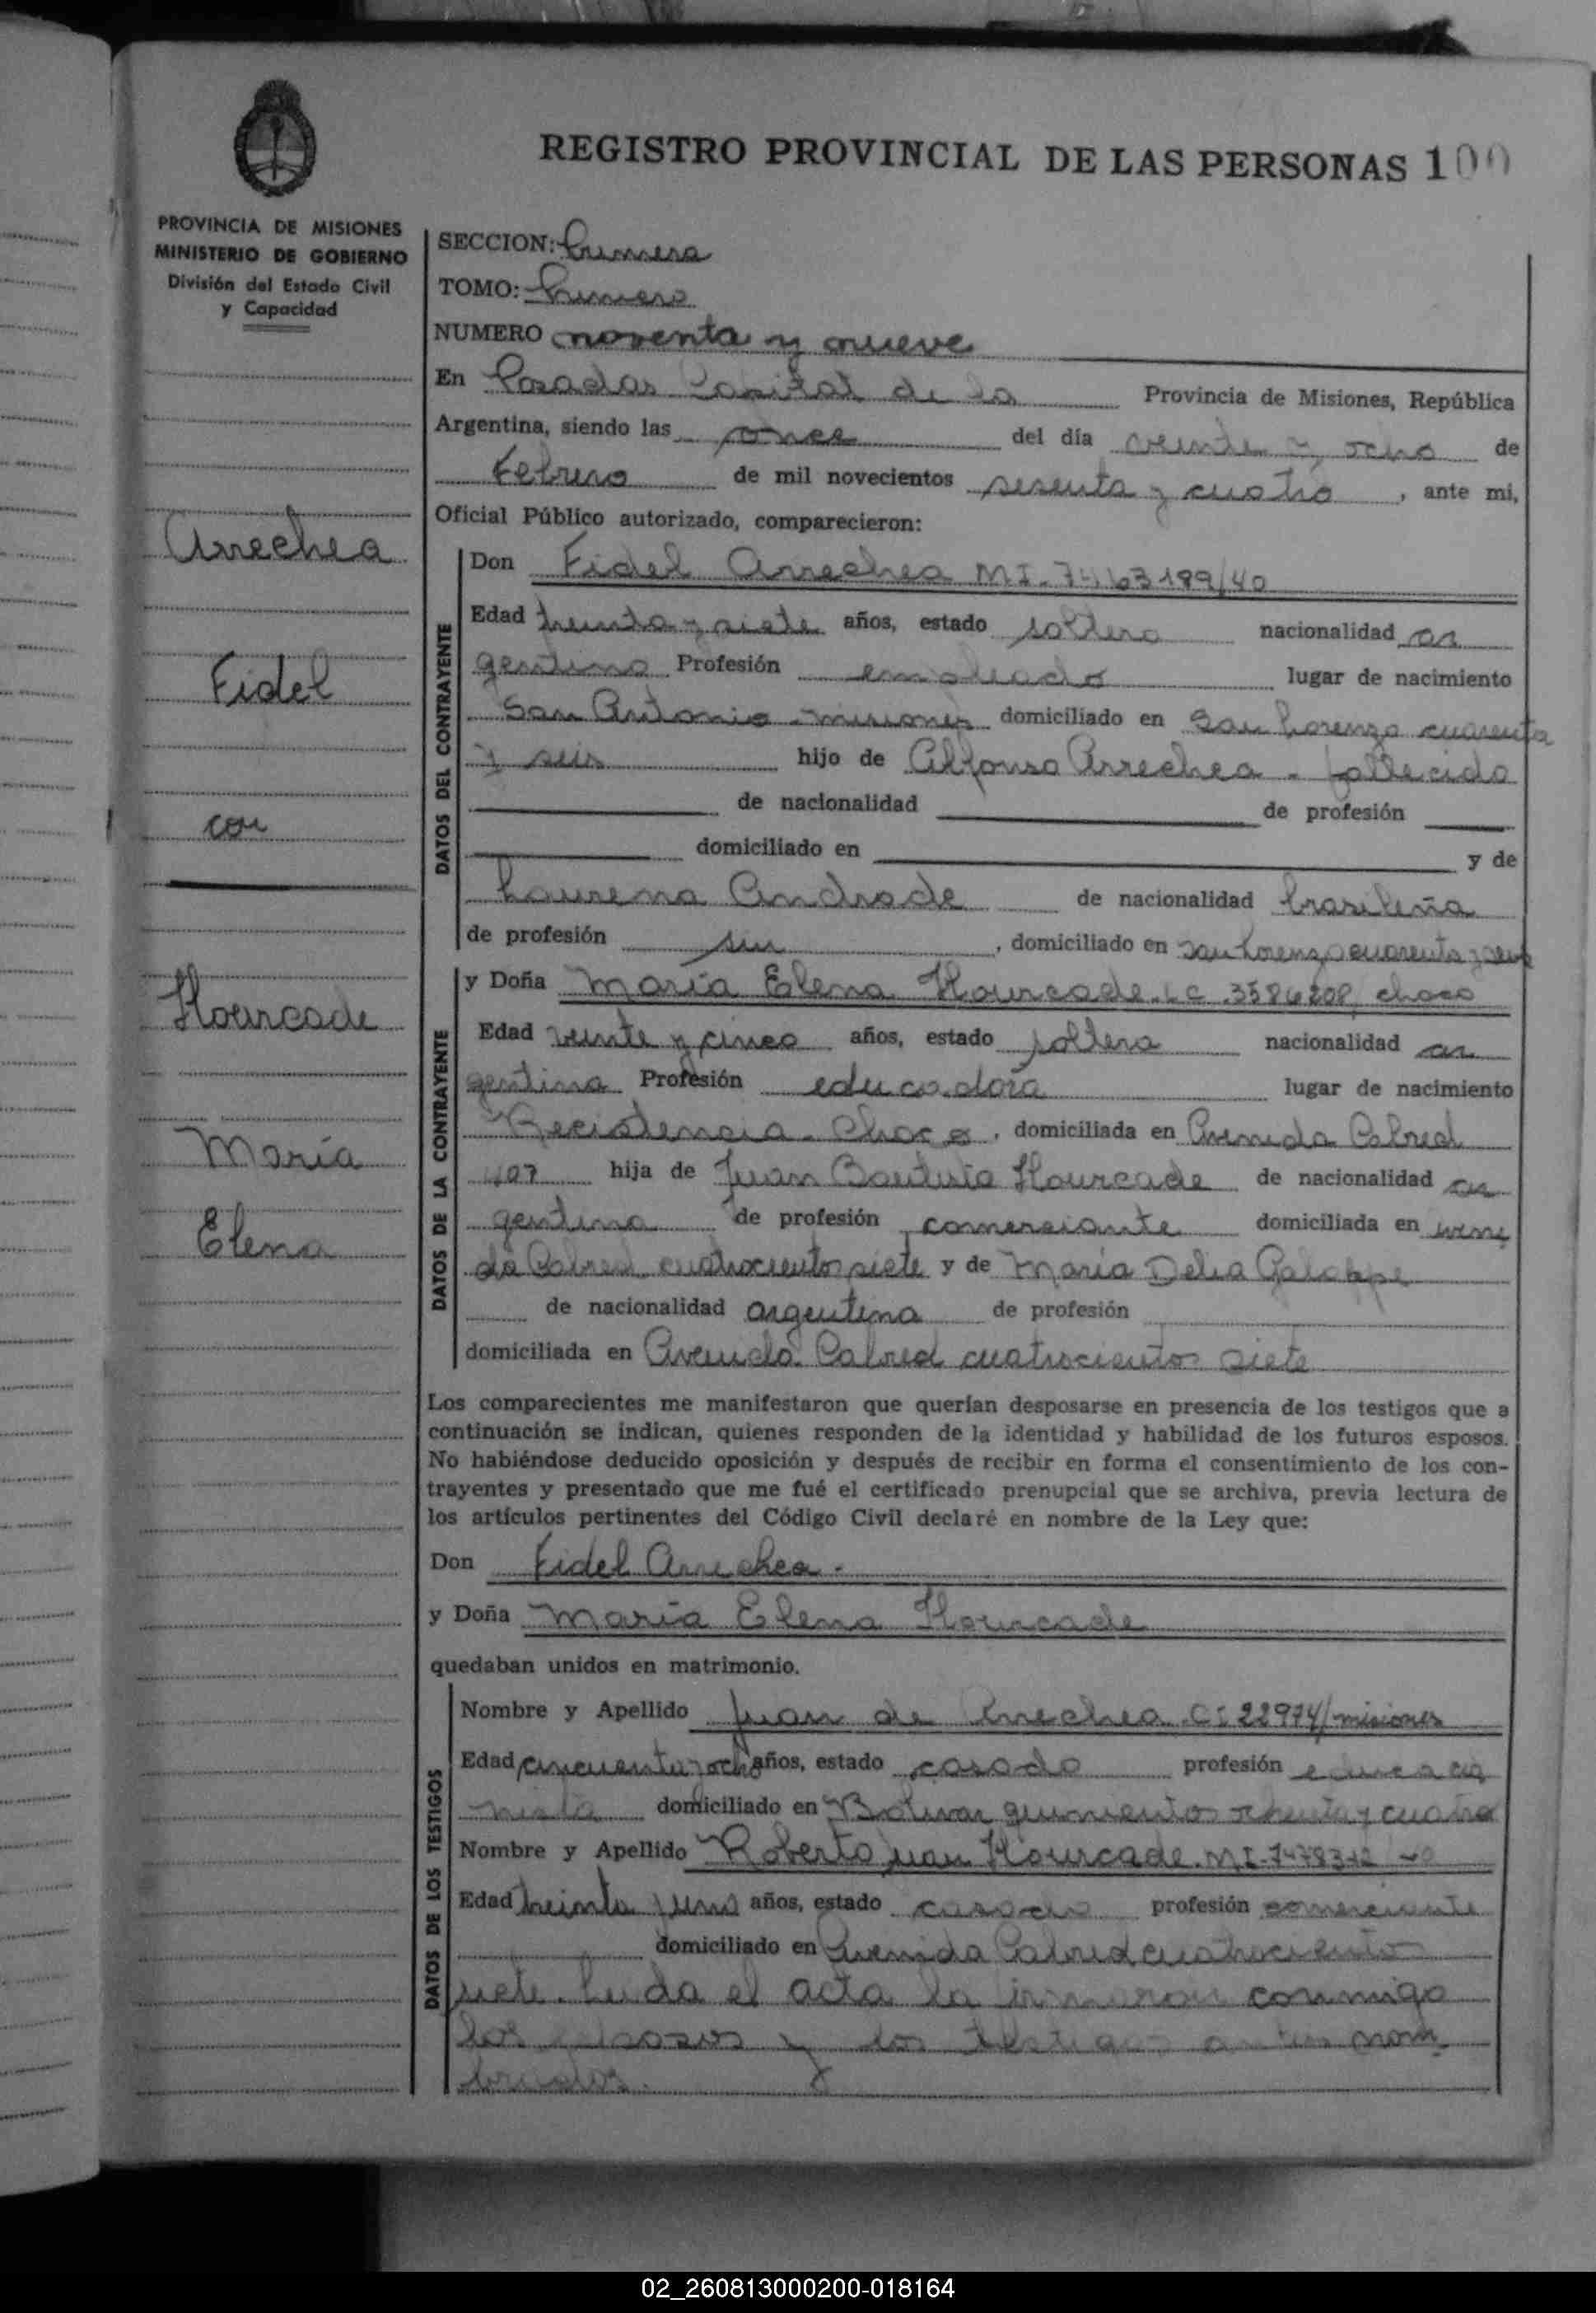 REGISTRO PROVINCIAL DE LAS PERSONAS 100
PROVINCIA DE MISIONES
MINISTERIO DE GOBIERNO
División del Estado Civil
y Capacidad
SECCION: Primera
TOMO: Primero
NUMERO noventa y nueve
En Posadas Capital de la Provincia de Misiones, República
Argentina, siendo las once del día veinte y ocho de
Febrero de mil novecientos sesenta y cuatro, ante mi,
Oficial Público autorizado, comparecieron:
Arrechea
Fidel
con
Hourcade
María
Elena
DATOS DEL CONTRAYENTE
Don Fidel Arrechea MI.
Edad treinta y siete años, estado soltero nacionalidad ar
gentino Profesión empleado lugar de nacimiento
San Antonio - misiones domiciliado en San Lorenzo cuarenta
y seis hijo de Alfonso Arrechea - fallecido
de nacionalidad de profesión
domiciliado en y de
Laurena Andrade de nacionalidad brasileña
de profesión sin, domiciliado en San Lorenzo cuarenta y seis
DATOS DE LA CONTRAYENTE
y Doña María Elena Hourcade. LC. chaco
Edad veinte y cinco años, estado soltera nacionalidad ar
gentina Profesión educadora lugar de nacimiento
Recistencia - Chaco, domiciliada en Avenida Cabred
407 hija de Juan Bautista Hourcade de nacionalidad ar
gentina de profesión comerciante domiciliada en
da Cabred cuatrocientos siete y de María Delia
de nacionalidad argentina de profesión
domiciliada en Avenida Cabred cuatrocientos siete
Los comparecientes me manifestaron que querían desposarse en presencia de los testigos que a
continuación se indican, quienes responden de la identidad y habilidad de los futuros esposos.
No habiéndose deducido oposición y después de recibir en forma el consentimiento de los con-
trayentes y presentado que me fué el certificado prenupcial que se archiva, previa lectura de
los artículos pertinentes del Código Civil declaré en nombre de la Ley que:
Don Fidel Arrechea.
y Doña María Elena Hourcade
quedaban unidos en matrimonio.
DATOS DE LOS TESTIGOS
Nombre y Apellido Juan de Arrechea CI 22974/misiones
Edad cincuenta y ocho años, estado casado profesión educacio
nista domiciliado en Bolivar quinientos ochenta y cuatro
Nombre y Apellido Roberto Juan Hourcade. MI.
Edad treinta y uno años, estado casado profesión comerciante
domiciliado en Avenida Cabred cuatrociento
siete. Leida el acta la firmaron conmigo
los esposos y los testigos antes nom
brados.
02_260813000200-018164